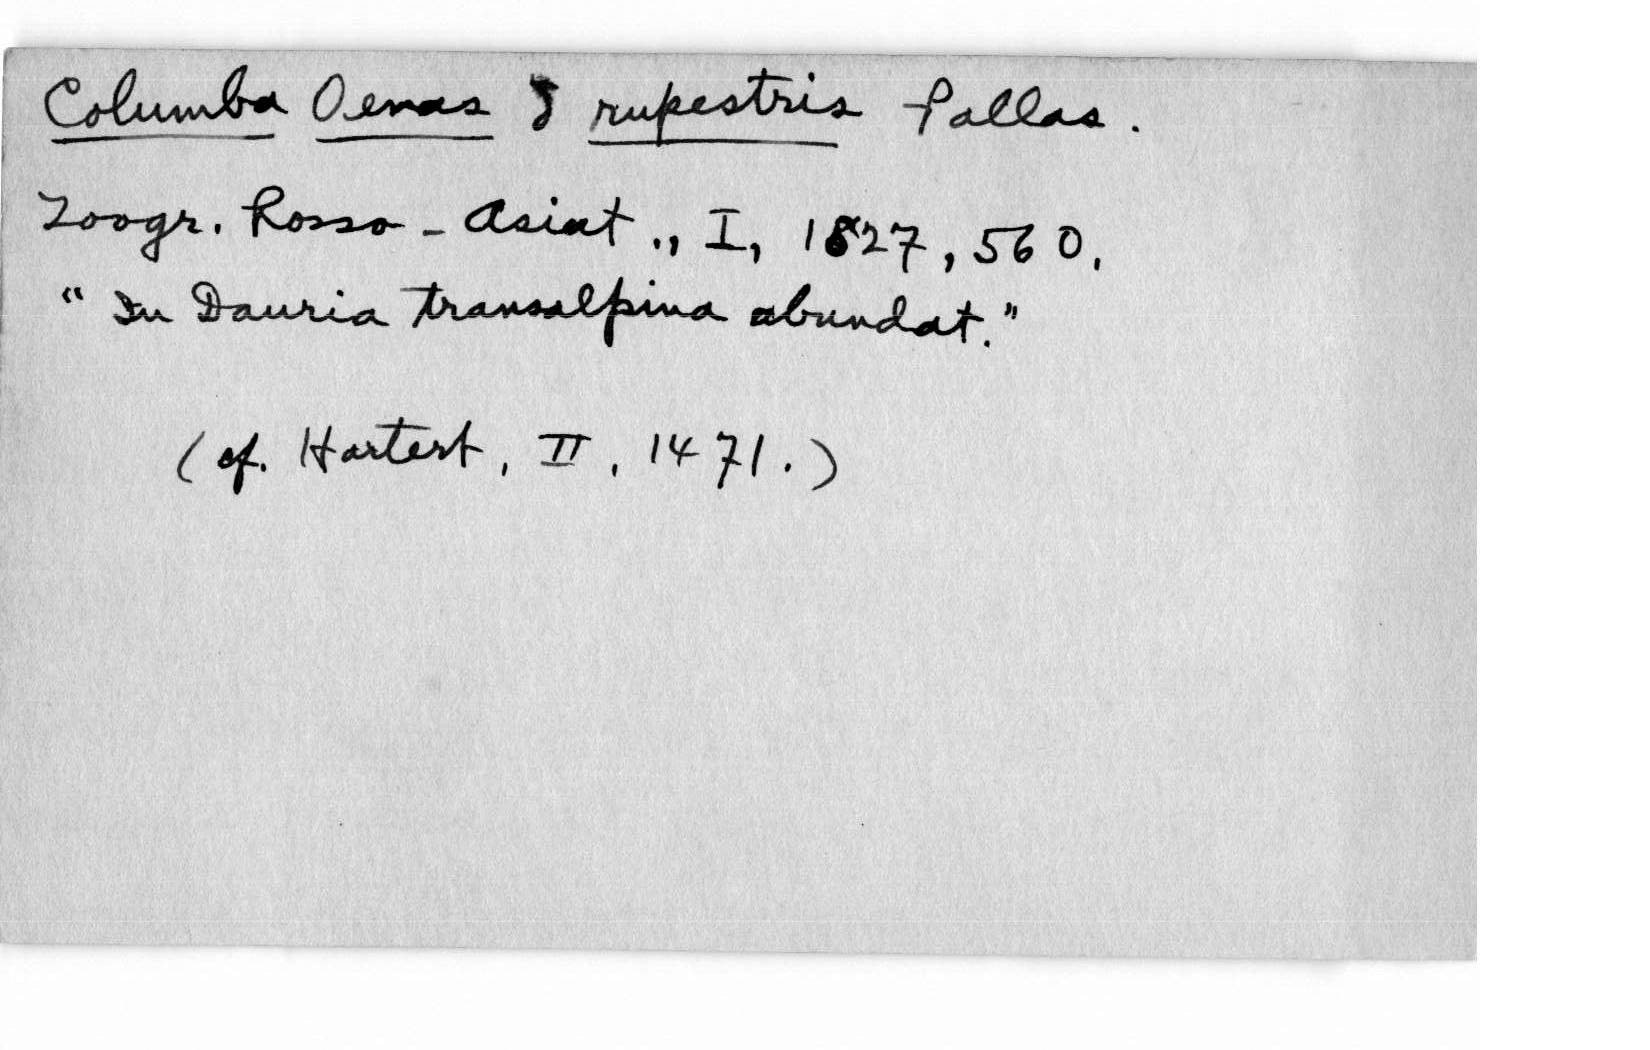 Columba Oenas δ rupestris Pallas.
Zoogr. Rosso-Asiat., I, 1827, 560.
"In Dauria transalpina abundat."
(cf. Hartert, II, 1471.)